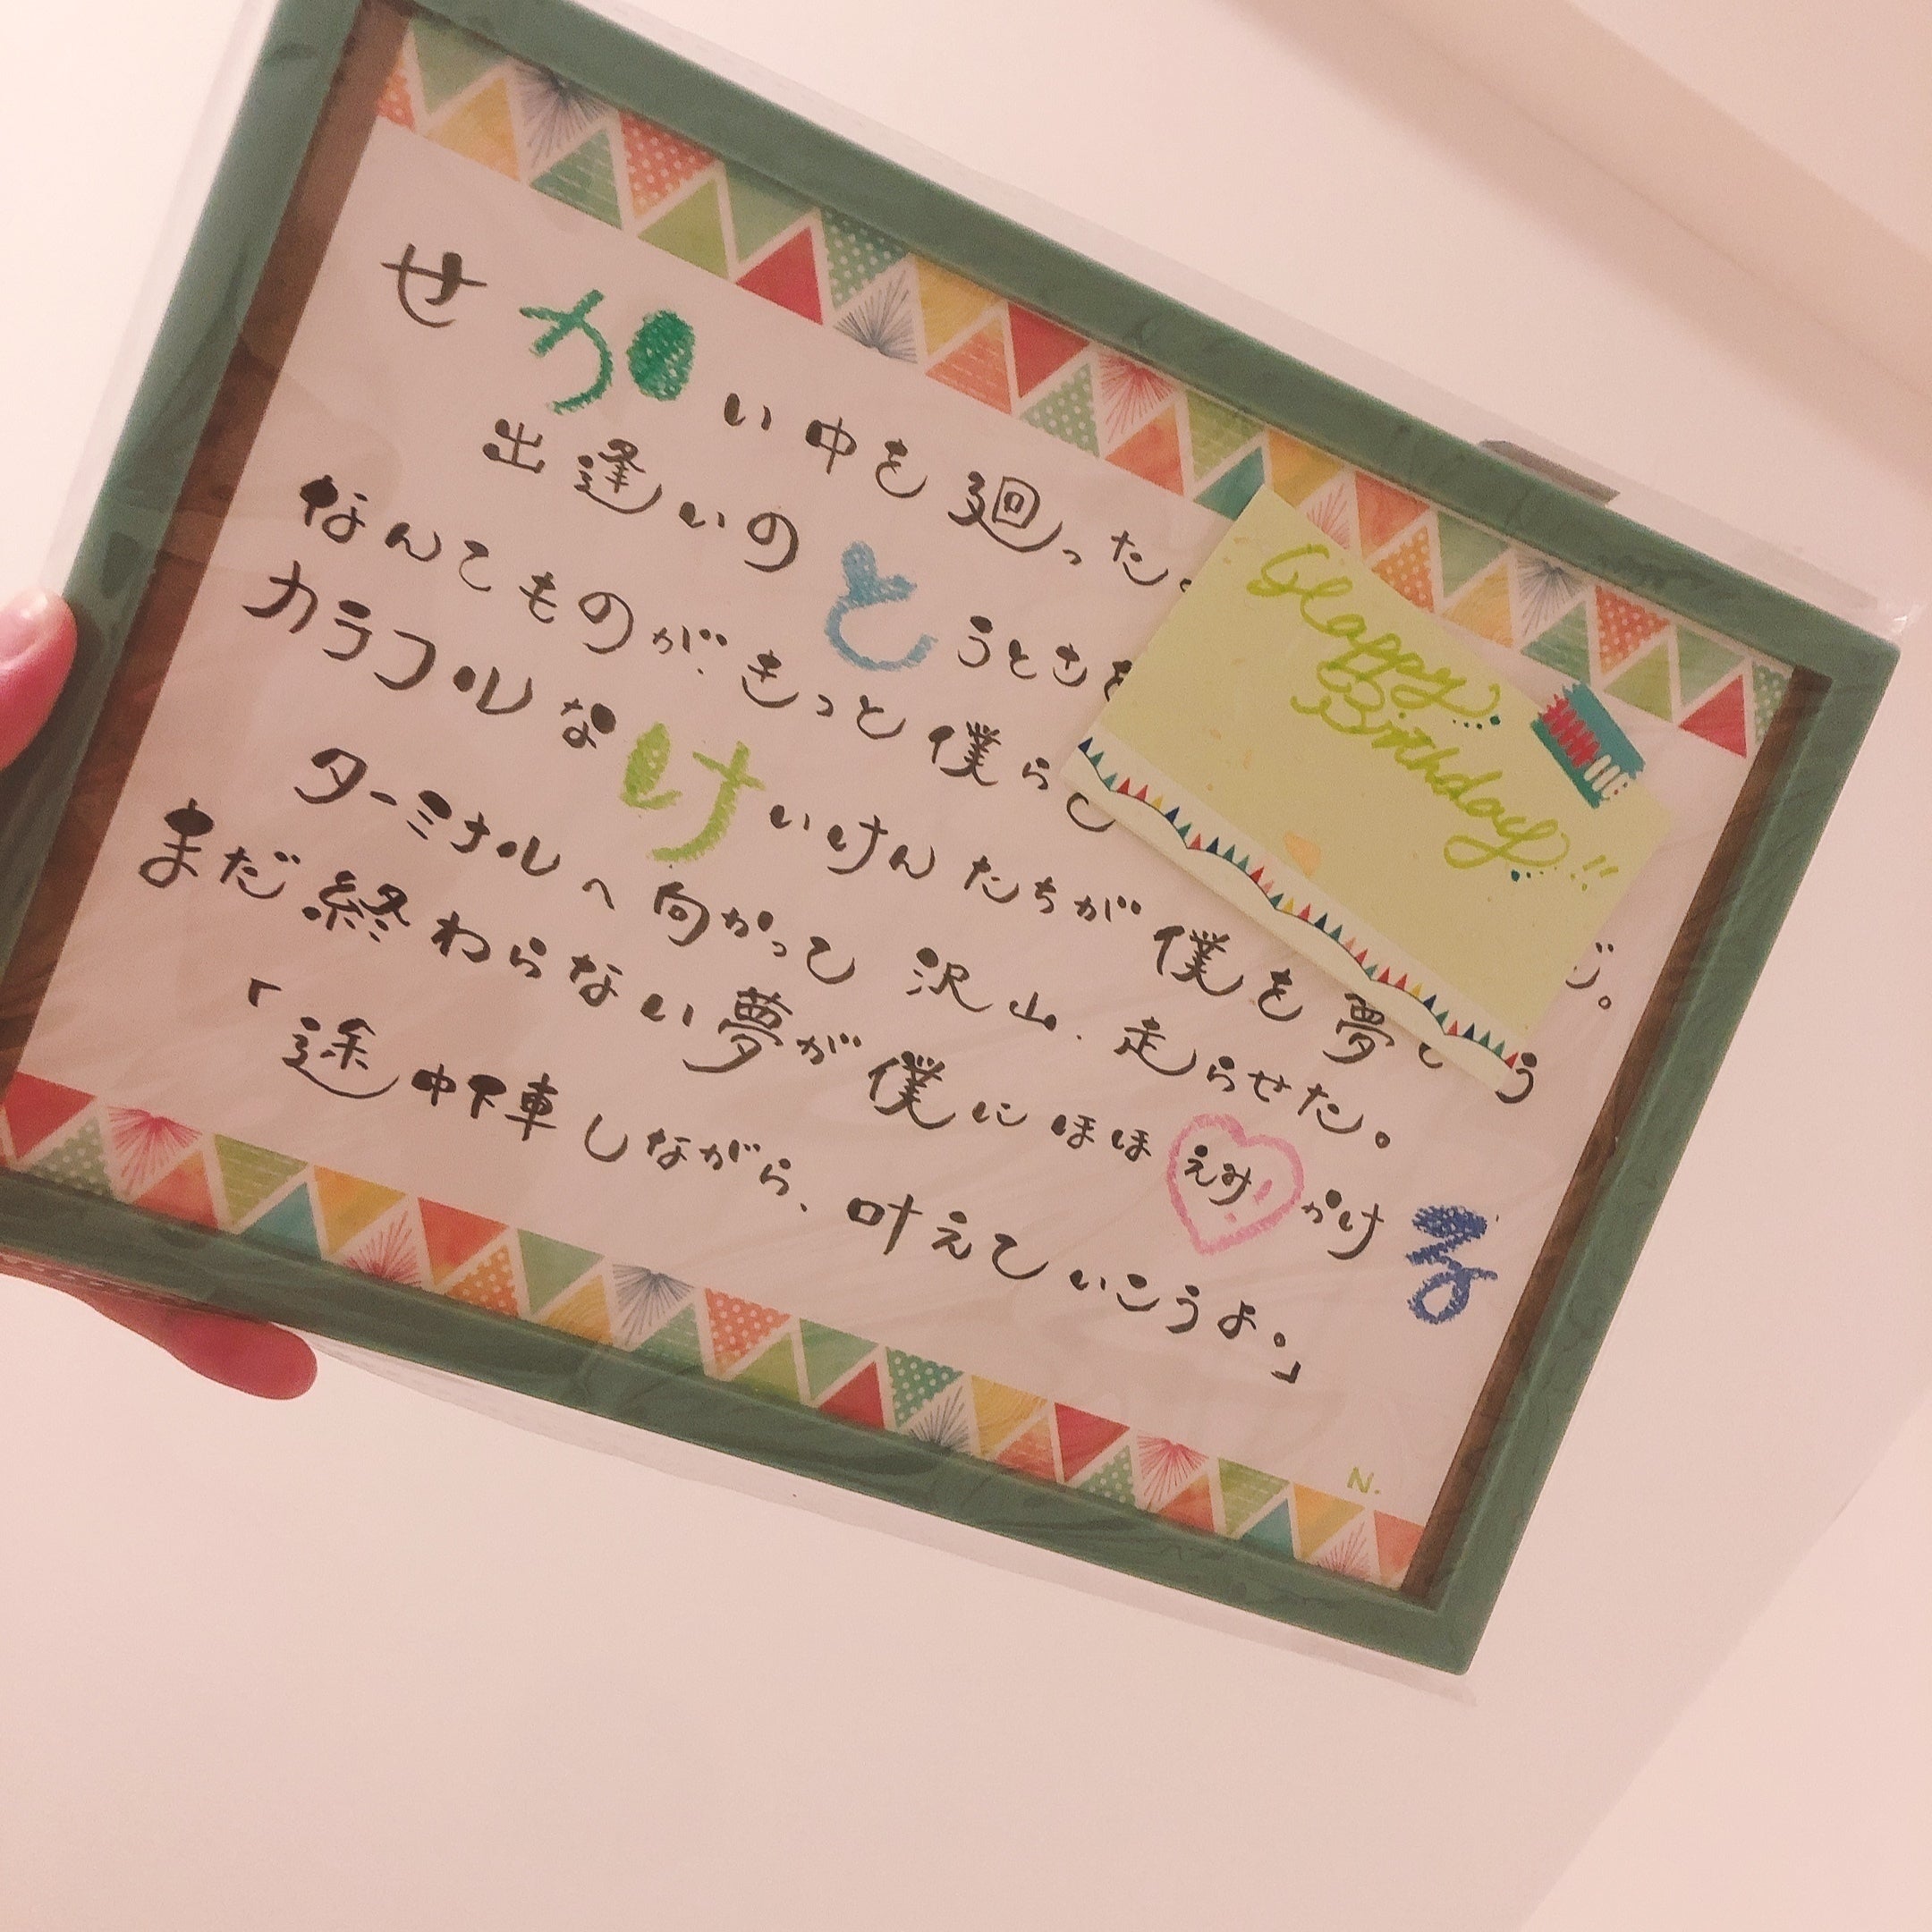 せかい中を廻った。
出逢いのとうとさを
なんてものが、きっと僕らも
じ。
カラフルなけいけんたちが僕を夢もう
ターミナルへ向かって沢山、走らせた。
まだ終わらない夢が僕にほほえみかける
「途中下車しながら、叶えていこうよ。」
N.
Happy
Birthday!!